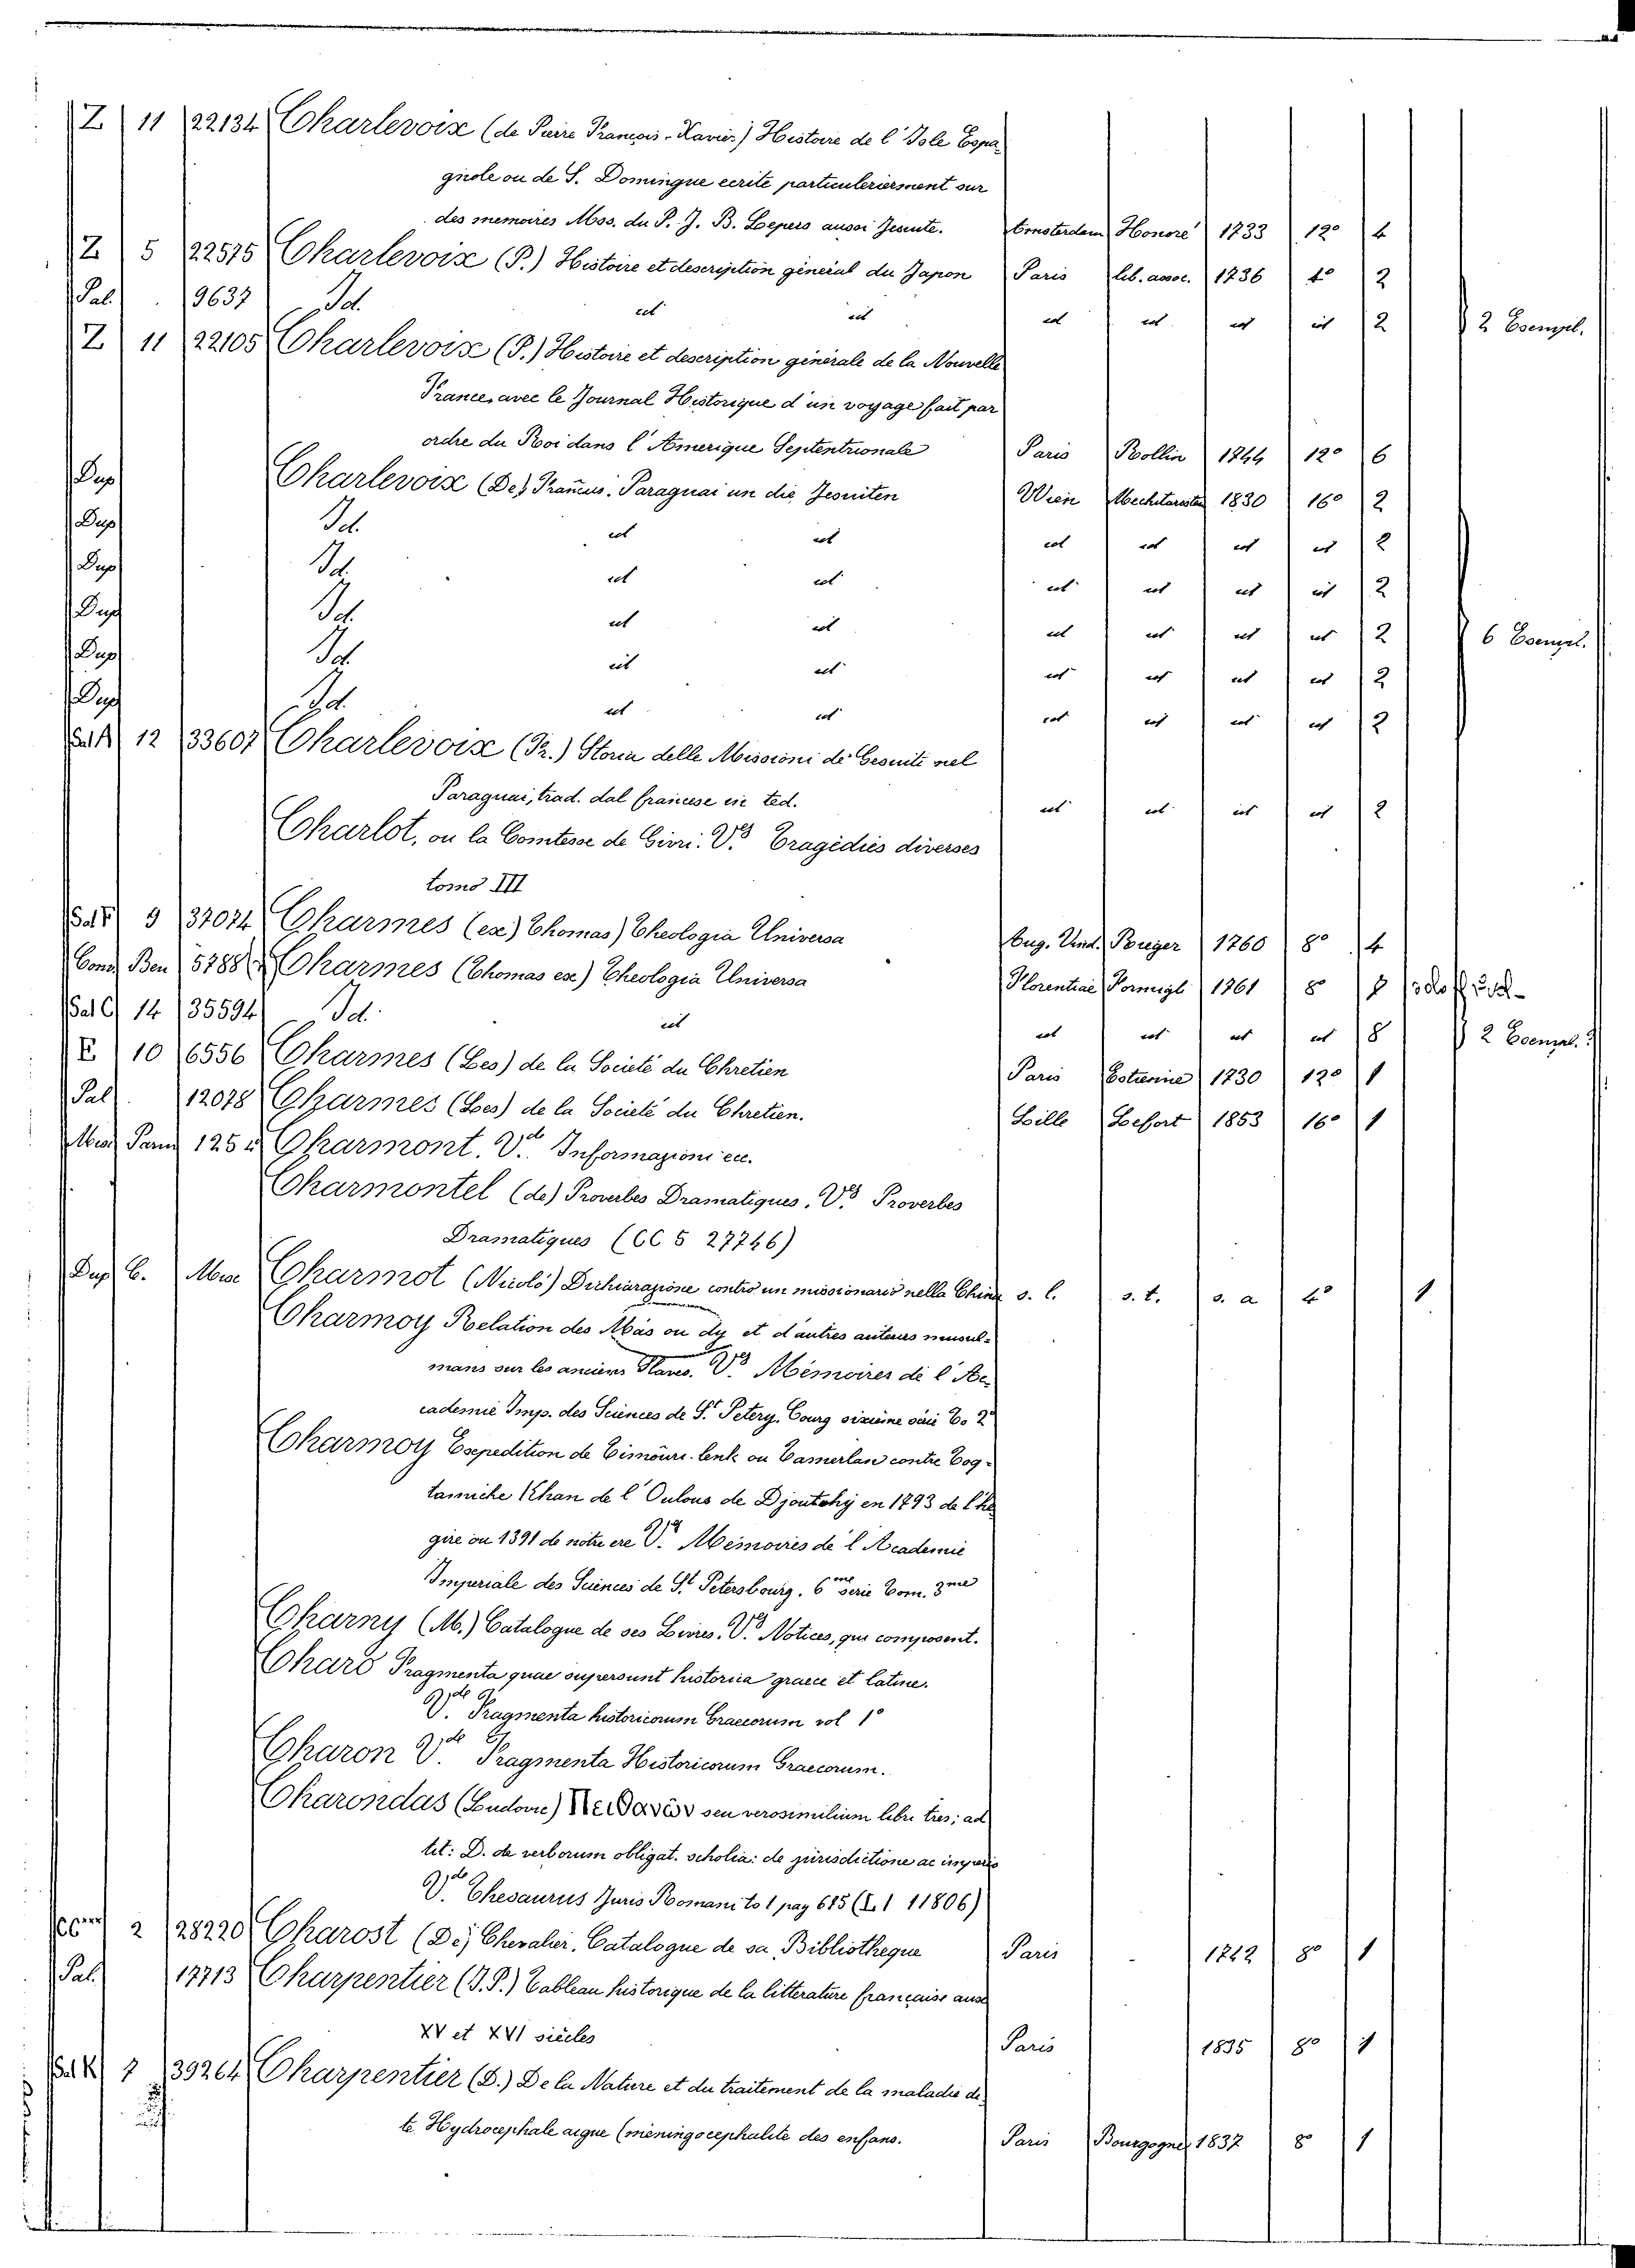 Z 11 22134 Charlevoix (de Pierre François-Xavier) Histoire de l'Isle Espa-
gnole ou de S. Domingue ecrite particulerierment sur
des memoires Mss. du P. J. B. Lepers aussi Jesuite. Amsterdam Honoré 1733 12° 4
Z 5 22575 Charlevoix (P.) Histoire et description général du Japon Paris lib. assoc. 1736 4° 2
Pal. 9637 Id. id id id id id id 2 2 Esempl.
Z 11 22105 Charlevoix (P.) Histoire et description générale de la Nouvelle
France, avec le Journal Historique d'un voyage fait par
ordre du Roi dans l'Amerique Septentrionale Paris Rollin 1744 12° 6
Dup Charlevoix (De) Francus. Paraguai un die Jesuiten Wien Mechitaristen 1830 16° 2
Dup Id. id id id id id id 2
Dup Id. id id id id id id 2
Dup Id. id id id id id id 2 6 Esempl.
Dup Id. id id id id id id 2
Dup Id. id id id id id id 2
Sal A 12 33607 Charlevoix (Fr.) Storia delle Missioni de' Gesuiti nel
Paraguai, trad. dal francese in ted. id id id id 2
Charlot, ou la Comtesse de Givri. V.s Tragédies diverses
tomo III
Sal F 9 37074 Charmes (ex) Thomas) Theologia Universa Aug. Vind. Rieger 1760 8° 4
Cons Ben 5788 Charmes (Thomas ex) Theologia Universa Florentiae Formigli 1761 8°
Sal C 14 35594 Id. id id id id id 8 2 Esempl.
E 10 6556 Charmes (Les) de la Societé du Chretien Paris Estienne 1730 12° 1
Pal. 12078 Charmes (Les) de la Societé du Chretien. Lille Lefort 1853 16° 1
Misc Pam 125 Charmont. V.de Informazioni ec.
Charmontel (de) Proverbes Dramatiques. V.s Proverbes
Dramatiques (CC 5 27746)
Dup C. Misc Charmot (Nicolò) Dichiarazione contro un missionario nella China s. l. s. t. s. a 4° 1
Charmoy Relation des Mas ou dy et d'autres auteurs musul-
mans sur les anciens Slaves. V.s Mémoires de l'Ac-
cademie Imp. des Sciences de S.t Petery. Courg sixième série To 2°
Charmoy Expedition de Timoûr. lenk ou Tamerlan contre Tog-
tamiche Khan de l'Oulous de Djoutchy en 1793 de l'he
gire ou 1391 de notre ere V.s Memoires de l'Academie
Imperiale des Sciences de S.t Petersbourg. 6me Serie Tom. 3me
Charny (M.) Catalogue de ses Livres. V.s Notices, qui composent.
Charo Fragmenta quae supersunt historica graece et latine.
V.de Fragmenta historicorum Graecorum vol 1°
Charon V.de Fragmenta Historicorum Graecorum.
Charondas (Ludovic) seu verosimilium libri tres; ad
tit: D. de verborum obligat. scholia: de jurisdictione ac imperio
V.de Thesaurus Juris Romani to 1 pag 685 (L 1 11806)
2 28220 Charost (De) Chevalier. Catalogue de sa Bibliotheque Paris - 1742 8° 1
Pal. 17713 Charpentier (J.P.) Tableau historique de la litterature francaise aux
XV et XVI siècles Paris 1835 8° 1
Sal K 7 39264 Charpentier (D.) De la Nature et du traitement de la maladie di-
te Hydrocephale aigue (meningocephalite des enfans. Paris Bourgogne 1837 8° 1